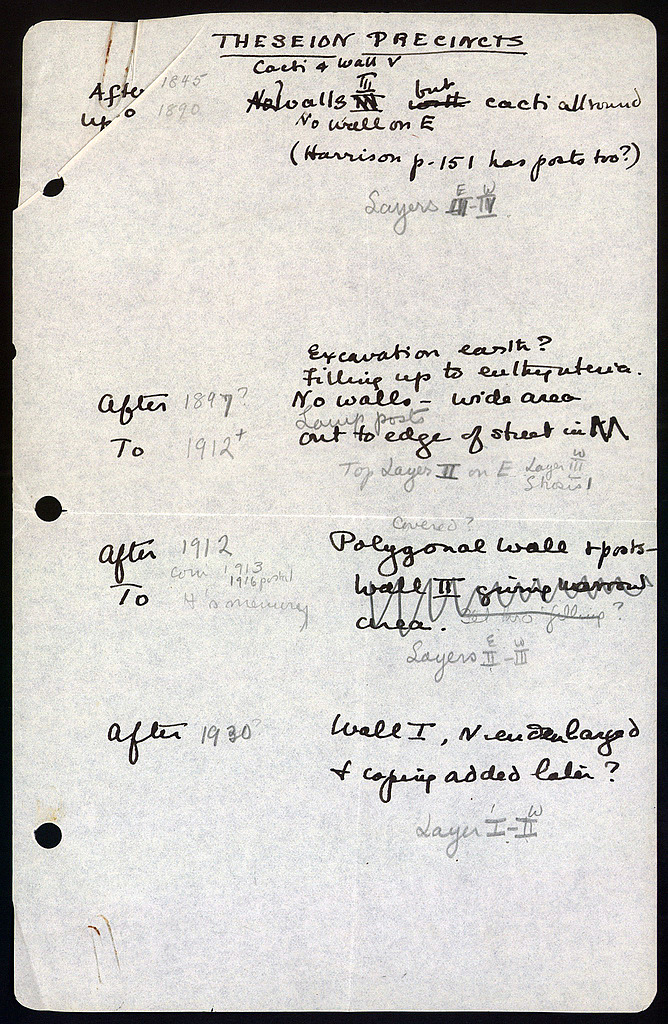 THESEION PRECINCTS
Cacti & Wall V
After 1845
III
No walls but cacti all round
up to 1890
No wall on E
(Harrison p. 151 has posts too?)
E W
Layers III-IV
Excavation earth?
Filling up to euthynteria.
After 1897? No walls - wide area
Lamp posts
To 1912+ out to edge of street in
Top Layer II on E Layer III W
Covered?
After 1912 Polygonal wall & posts-
coin 1913
1916 postal
To H's memory wall II giving narrow
area. filling?
E W
Layers II-III
After 1930? Wall I, N. end enlarged
& coping added later?
W
Layer I-II